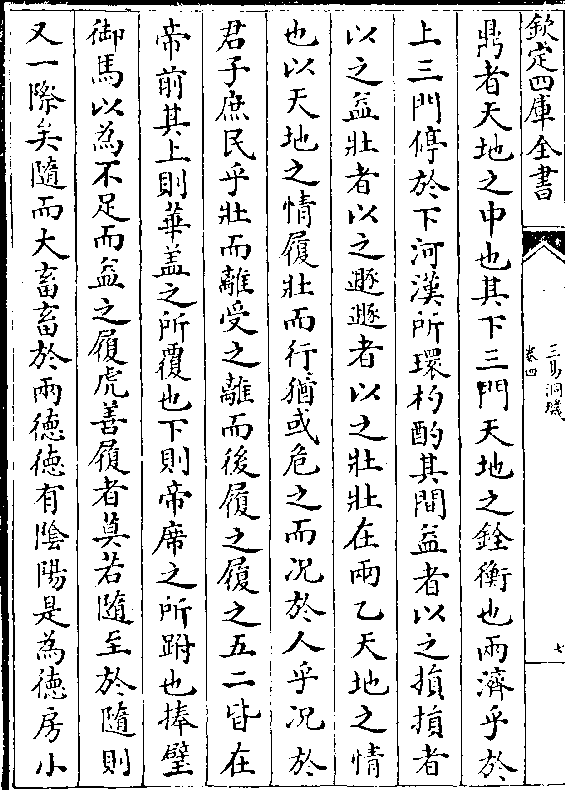 欽定四庫全書
三易洞璣
卷四
七
鼎者天地之中也其下三門天地之銓衡也兩濟乎於
上三門停於下河漢所環杓酌其間益者以之損損者
以之益壯者以之遯遯者以之壯壯在兩乙天地之情
也以天地之情履壯而行猶或危之而况於人乎况於
君子庶民乎壯而離受之離而後履之履之五二皆在
帝前其上則華盖之所覆也下則帝席之所跗也捧璧
御馬以為不足而益之履虎善履者莫若隨至於隨則
又一際矣隨而大畜畜於兩德德有陰陽是為德房小